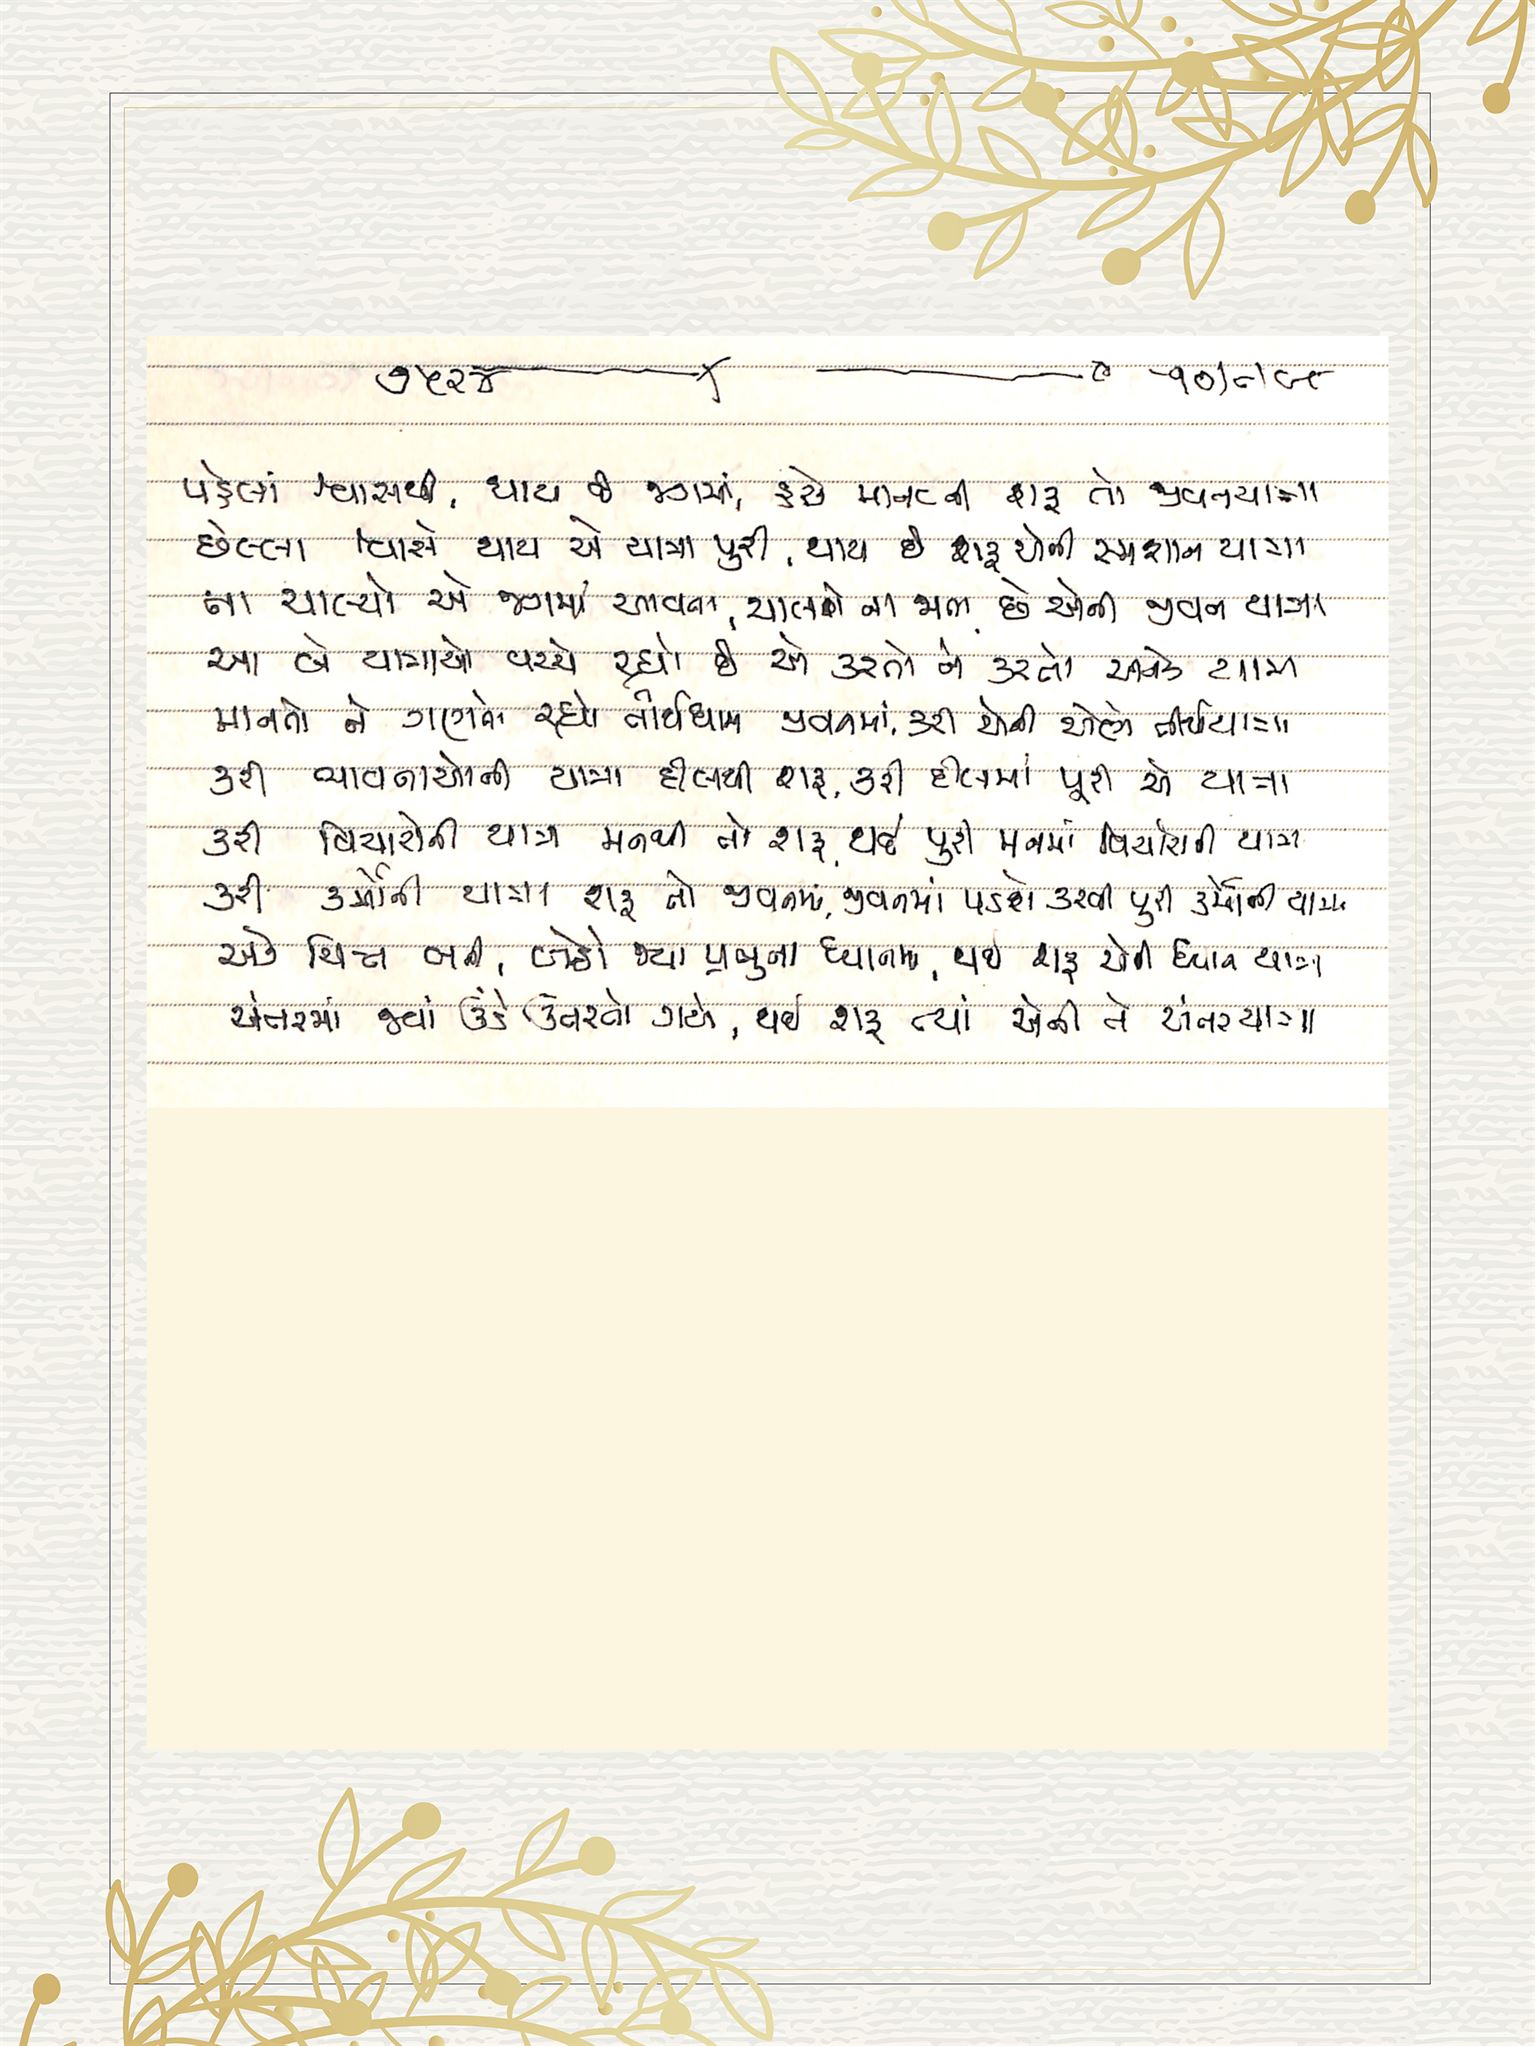 ૭૫૨૪
પહેલાં શ્વાસથી, થાય છે જગમાં, દરેક માનવની શરૂ તો જીવનયાત્રા
છેલ્લા શ્વાસે થાય એ યાત્રા પુરી, થાય છે શરૂ એની સ્મશાન યાત્રા
ના ચાલ્યો એ જગમાં આવતા, ચાલશે ના ભલે છે એની જીવન યાત્રા
આ બે યાત્રાઓ વચ્ચે રહ્યો છે એ કરતો ને કરતો અનેક યાત્રા
માનતો ને ગણતો રહ્યો તીર્થધામ જીવનમાં, કરી એની એણે તીર્થયાત્રા
કરી ભાવનાઓની યાત્રા દીલથી શરૂ, કરી દીલમાં પૂરી એ યાત્રા
કરી વિચારોની યાત્રા મનથી તો શરૂ, થઈ પુરી મનમાં વિચારોની યાત્રા
કરી કર્મોની યાત્રા શરૂ તો જીવનમાં, જીવનમાં પડશે કરવી પુરી કર્મોની યાત્રા
એક ચિત્ત બની, બેઠો જ્યાં પ્રભુના ધ્યાનમાં, થઈ શરૂ એની ધ્યાન યાત્રા
અંતરમાં જ્યાં ઊંડે ઊતરતો ગયો, થઈ શરૂ ત્યાં એની તે અંતરયાત્રા